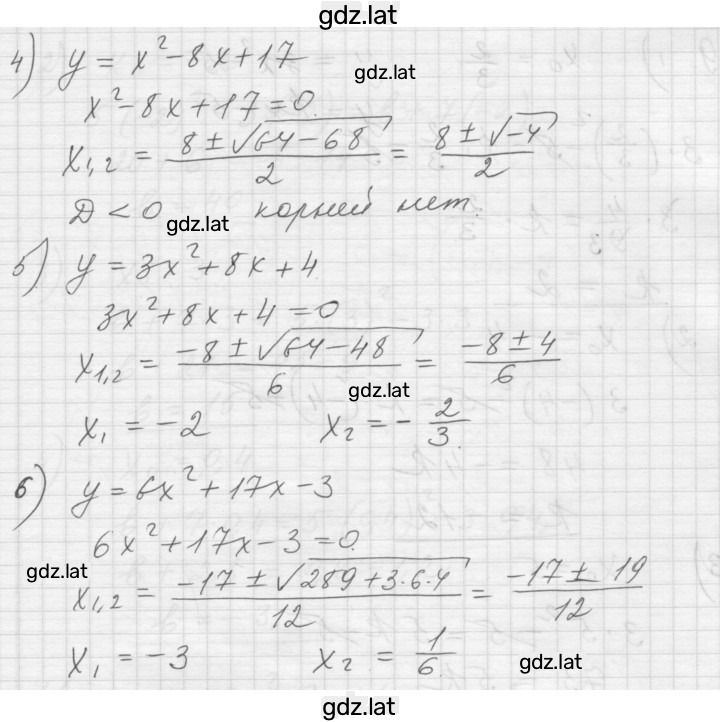 gdz.lat
4) y = x² - 8x + 17
gdz.lat
x² - 8x + 17 = 0.
x₁,₂ = (8 ± √(64 - 68))/2 = (8 ± √(-4))/2
D < 0 корней нет.
gdz.lat
5) y = 3x² + 8x + 4
3x² + 8x + 4 = 0
x₁,₂ = (-8 ± √(64 - 48))/6 = (-8 ± 4)/6
gdz.lat
x₁ = -2 x₂ = -2/3.
6) y = 6x² + 17x - 3
6x² + 17x - 3 = 0.
gdz.lat
x₁,₂ = (-17 ± √(289 + 3·6·4))/12 = (-17 ± 19)/12
x₁ = -3 x₂ = 1/6.
gdz.lat
gdz.lat